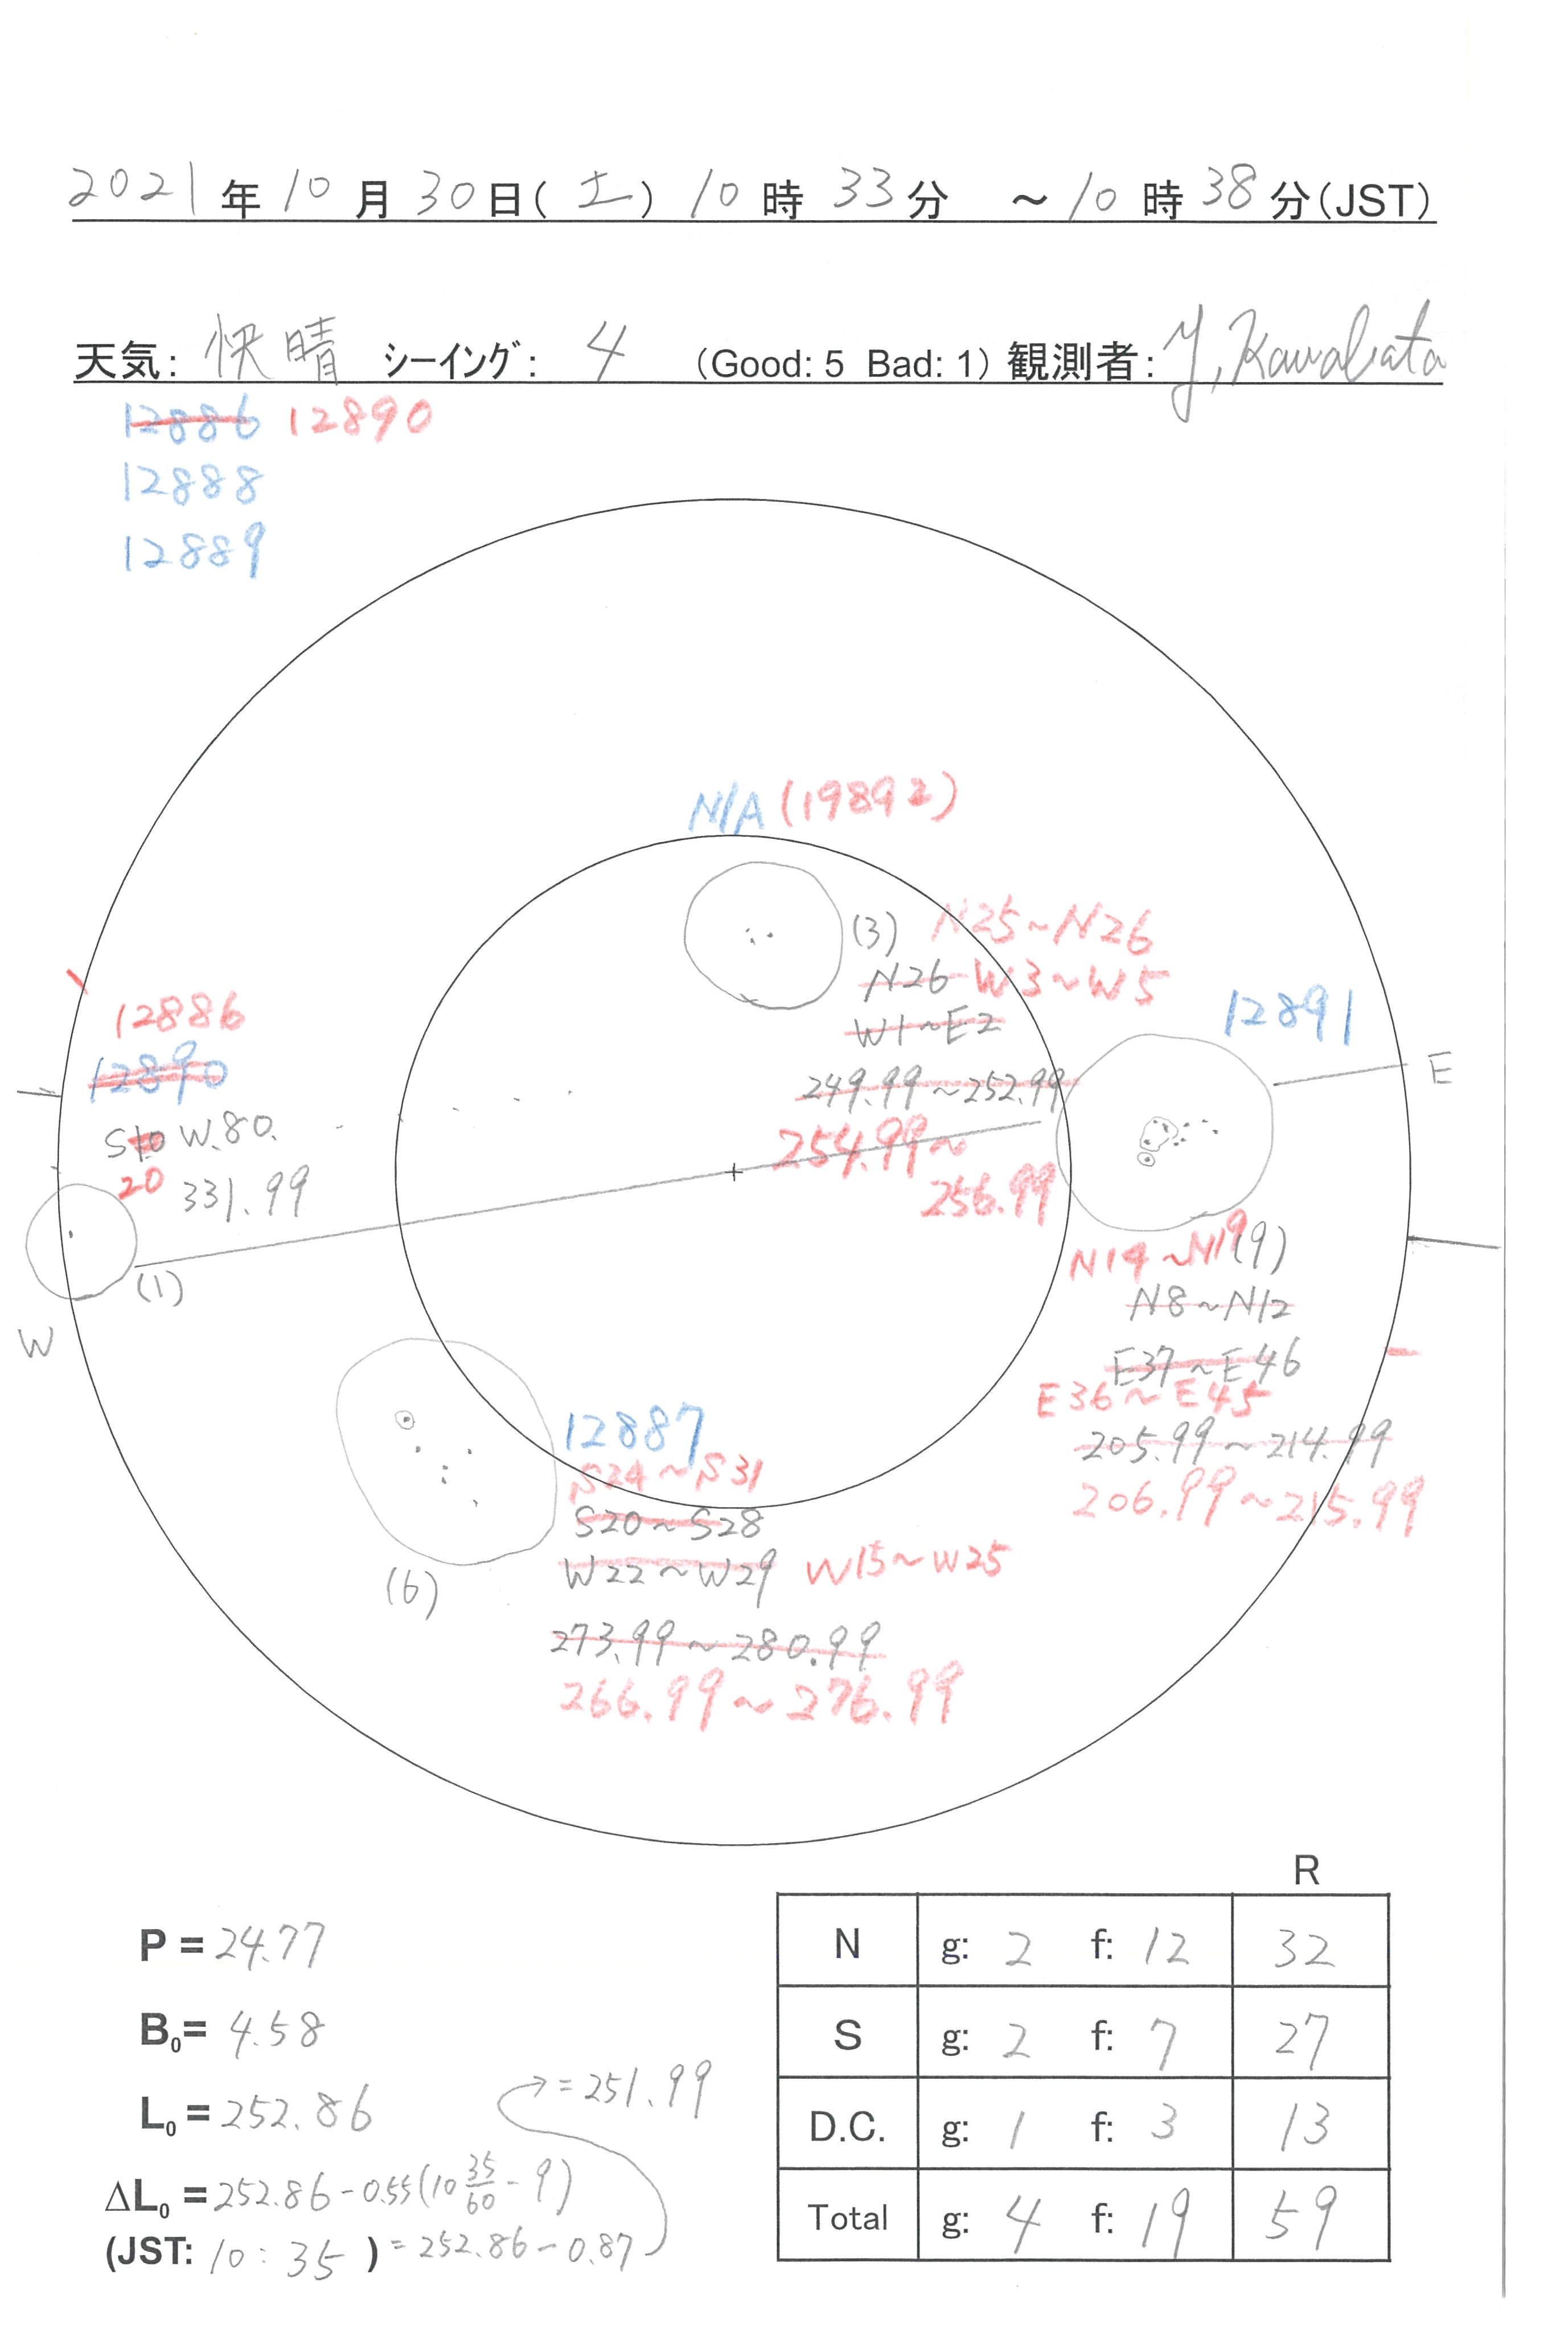 2021年10月30日(土)10時33分 ~10時38分(JST)
天気: 快晴 シーイング: 4 (Good: 5 Bad: 1) 観測者: Y, Kawabata
12886 12890
12888
12889
N/A (19892)
(3) N25~N26
N26 W3~W5
W1~E2
249.99~252.99
254.99~
256.99
12891
E
12886
12890
S10 W.80.
20 331.99
(1)
W
N14~N19 (9)
N8~N12
E37~E46
E36~E45
205.99~214.99
206.99~215.99
12887
S24~S31
S20~S28
W22~W29 W15~W25
(6)
273.99~280.99
266.99~276.99
P = 24.77
B₀= 4.58
L₀ = 252.86
→ = 251.99
ΔL₀ = 252.86 - 0.55(10 35/60 - 9)
(JST: 10:35 ) = 252.86 - 0.87
R
N g: 2 f: 12 32
S g: 2 f: 7 27
D.C. g: 1 f: 3 13
Total g: 4 f: 19 59